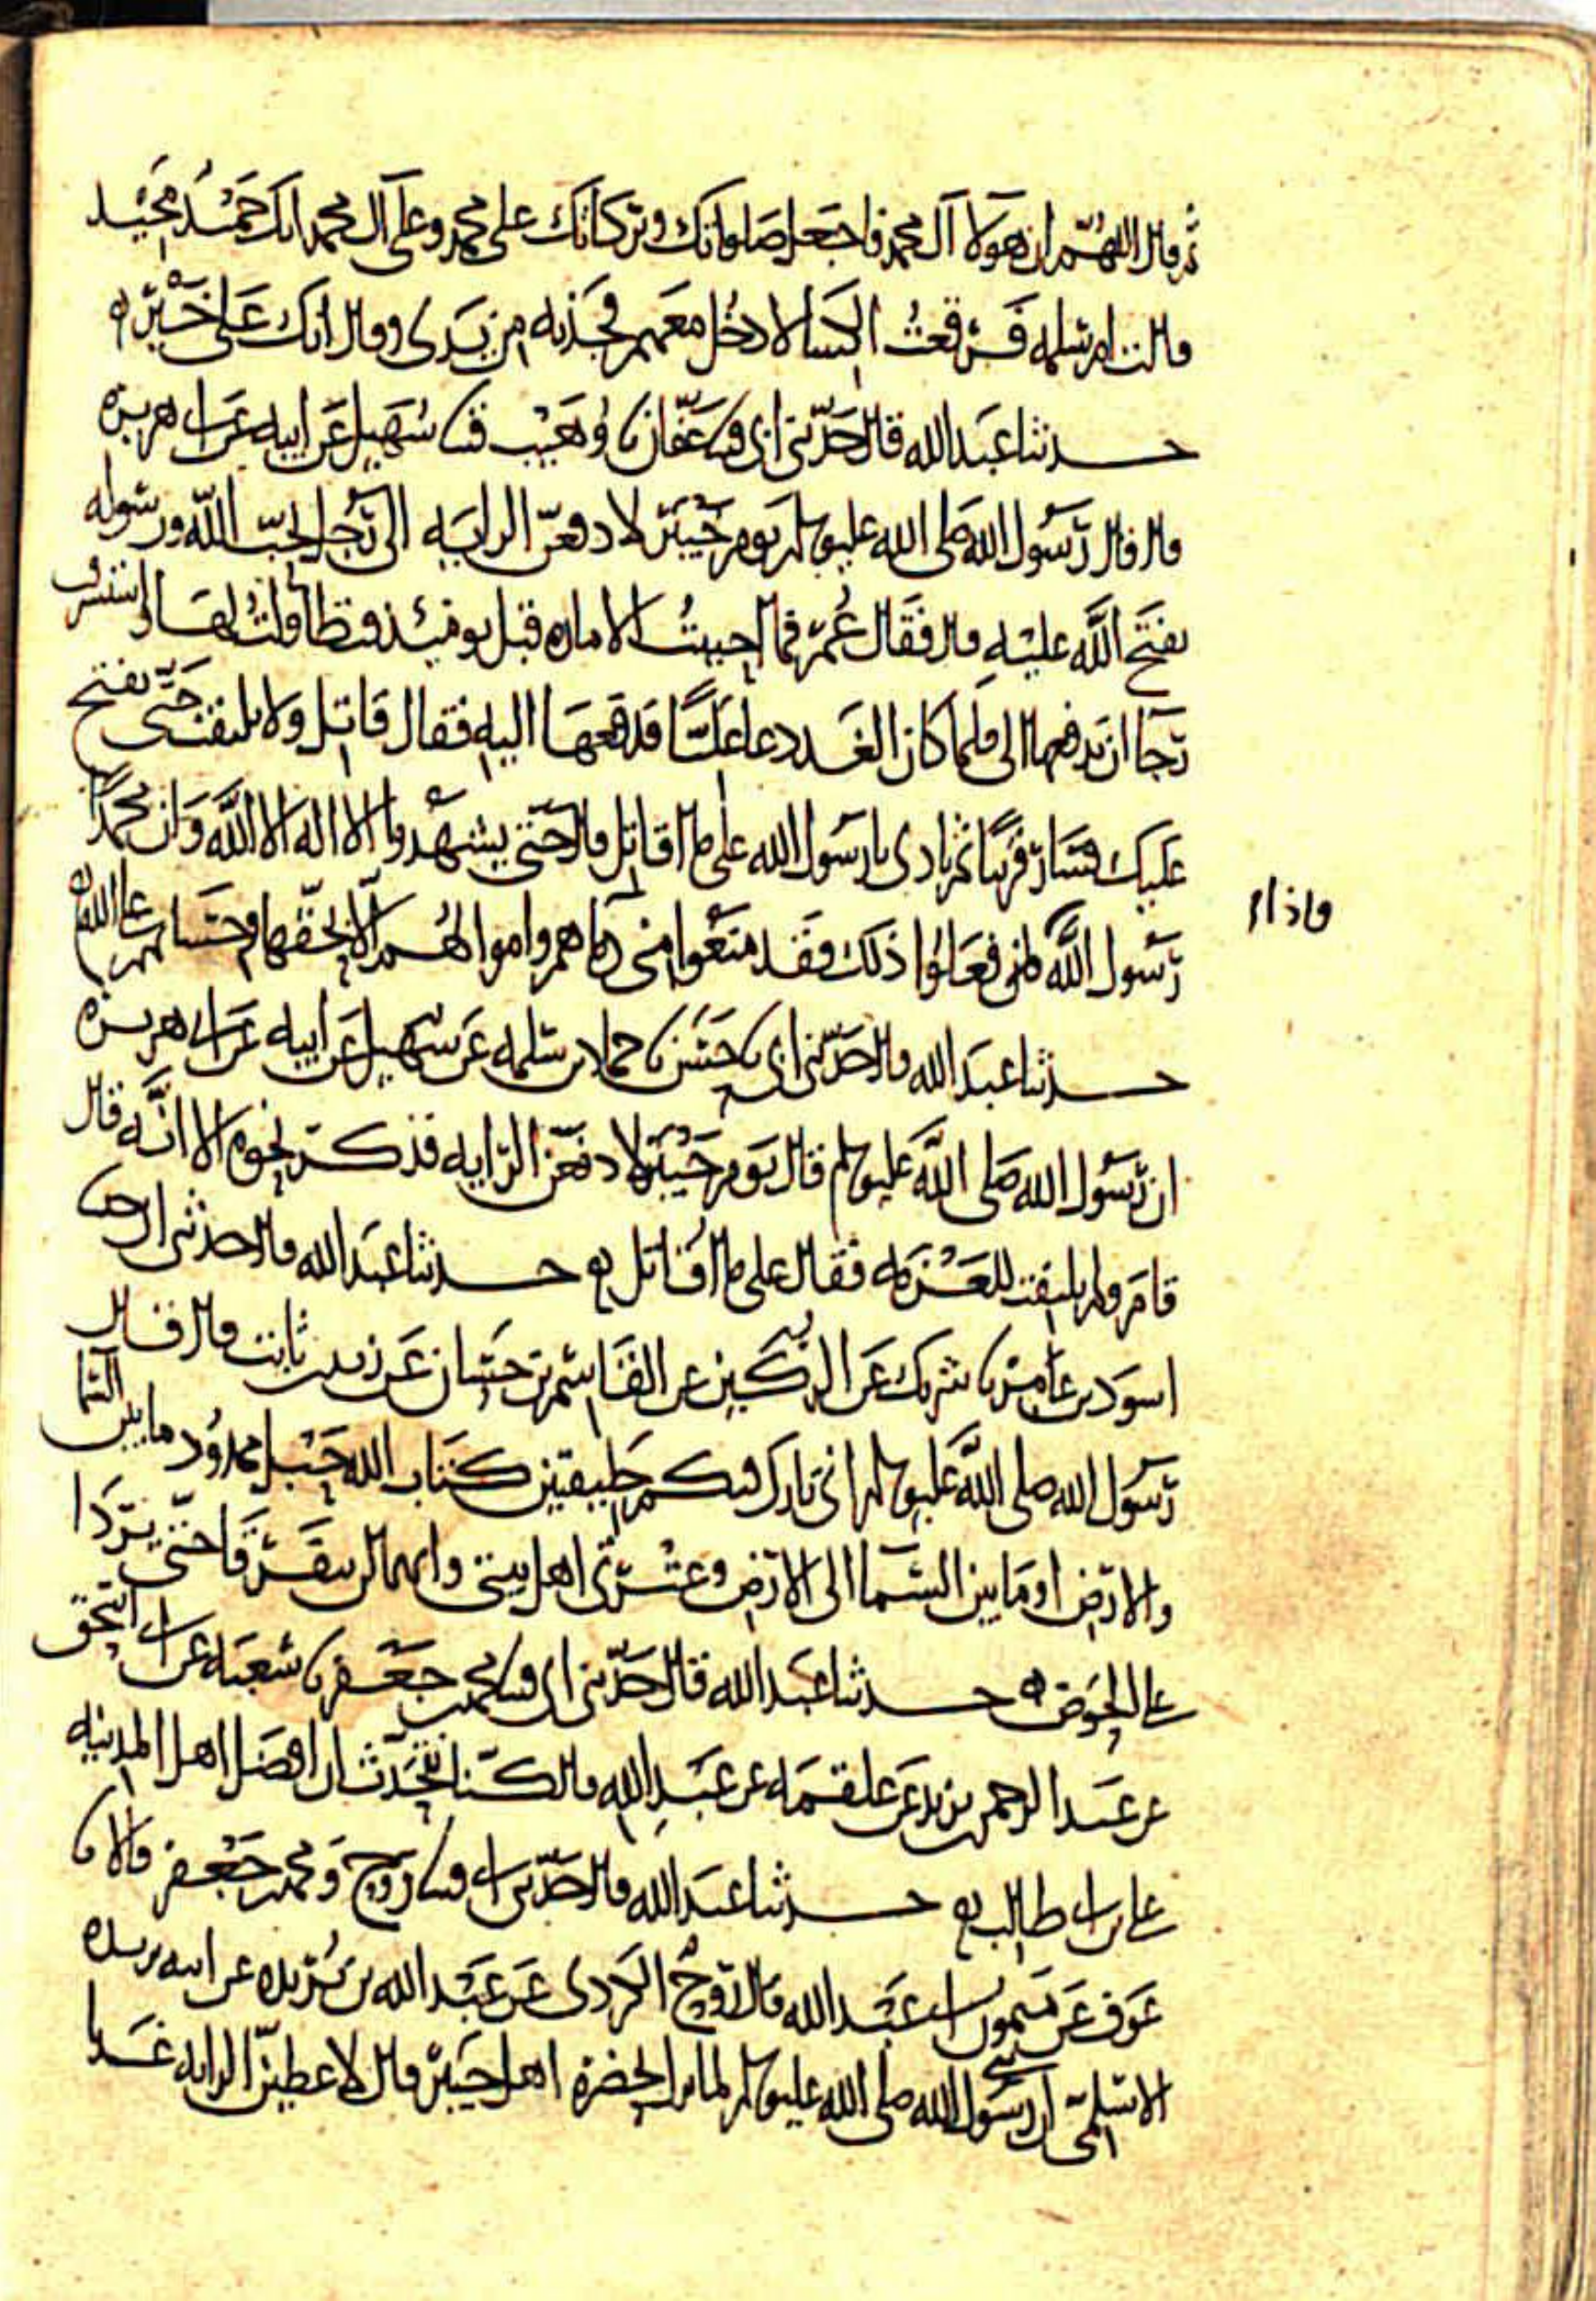 ثم قال اللهم ان هولا آل محمد فاجعل صلواتك وبركاتك على محمد وعلى آل محمد انك حميد مجيد
قالت ام سلمه فرفعت الكسا لادخل معهم فجذبه من يدى وقال انك على خير ه
حدثنا عبد الله قال حدثنى ابى قثنا عفان نا وهيب قثنا سهيل عن ابيه عن ابى هريره
قال قال رسول الله صلى الله عليه وسلم يوم خيبر لادفعن الرايه الى رجل يحب الله ورسوله
يفتح الله عليه قال فقال عمر فما احببت الاماره قبل يومئذ فتطاولت لها واستشرفت
رجا ان يدفعها الى فلما كان الغد دعا عليا فدفعها اليه فقال قاتل ولا تلتفت حتى يفتح
عليك فسار قريبا ثم نادى يا رسول الله على ما اقاتل قال حتى يشهدوا ان لا اله الا الله وان محمدا
رسول الله فاذا فعلوا ذلك فقد منعوا منى دماهم واموالهم الا بحقها وحسابهم على الله ه
فاذا
حدثنا عبد الله قال حدثنى ابى نا حسن نا حماد بن سلمه عن سهيل عن ابيه عن ابى هريره
ان رسول الله صلى الله عليه وسلم قال يوم خيبر لادفعن الرايه فذكر نحوه الا انه قال
قام ولم يلتفت للعزمه فقال على ما اقاتل ه حدثنا عبد الله قال حدثنى ابى نا
اسود بن عامر نا شريك عن الركين عن القاسم بن حسان عن زيد بن ثابت قال قال
رسول الله صلى الله عليه وسلم انى تارك فيكم خليفتين كتاب الله حبل ممدود ما بين السما
والارض او ما بين السما الى الارض وعترتى اهل بيتى وانهما لن يتفرقا حتى يردا
على الحوض ه حدثنا عبد الله قال حدثنى ابى قثنا محمد بن جعفر نا شعبه عن ابى اسحق
عن عبد الرحمن بن يزيد عن علقمه عن عبد الله قال كنا نتحدث ان افضل اهل المدينه
على بن ابى طالب ه حدثنا عبد الله قال حدثنى ابى قثنا روح ومحمد بن جعفر قالا نا
عوف عن ميمون ابى عبد الله قال روح الكردى عن عبد الله بن بريده عن ابيه بريده
الاسلمى ان رسول الله صلى الله عليه وسلم لما نزل بحضرة اهل خيبر قال لاعطين الرايه غدا